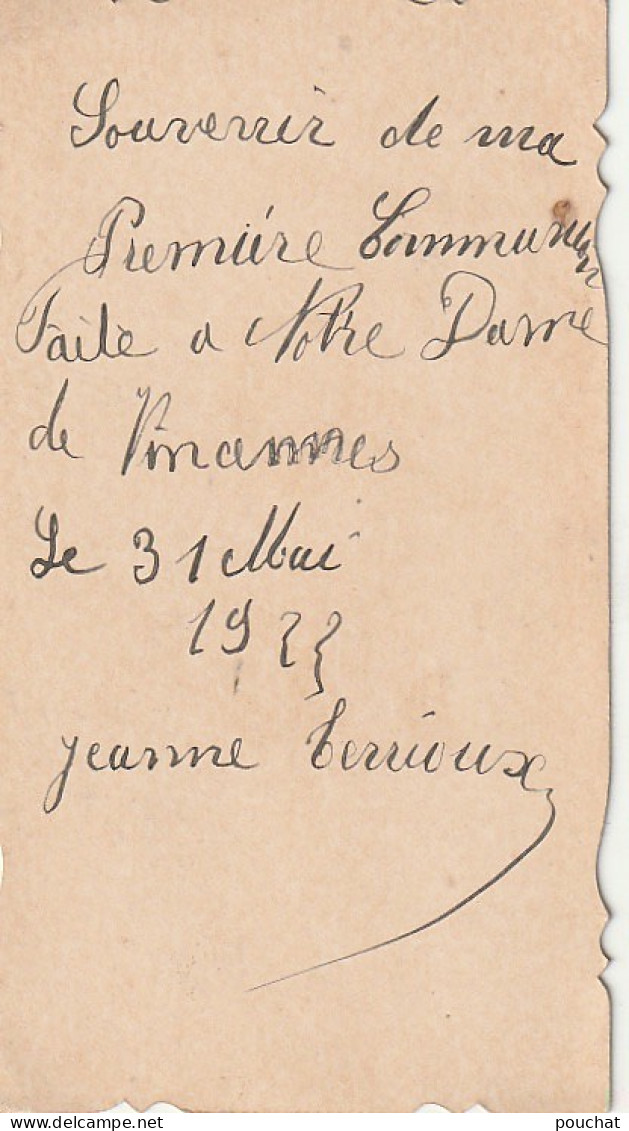 Souvenir de ma
Première Communion
Faite a Notre Dame
de Vincennes
Le 31 Mai
1922
jeanne Terrioux
pouchat